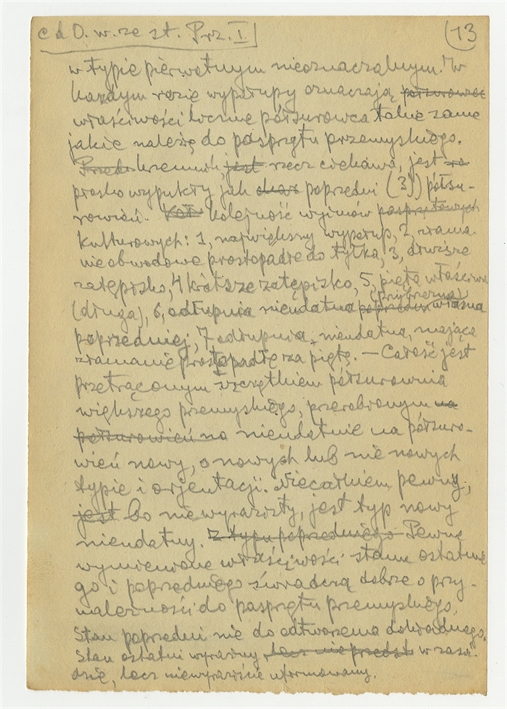 c d O. w. ze st. Prz. I
13
w typie pierwotnym nieoznaczalnym. W
każdym razie wypsłupy oznaczają półsurowiec
właściwości liczne półsurowca takie same
jakie należą do pasprzętu przemyskiego.
krzemnik jest rzecz ciekawa, jest
prosto wypukły jak poprzedni (3) półsu-
rowień. kolejność wyimów pasprzętowych
kulturowych: 1, największy wypsłup, 2, złama-
nie obwodowe prostopadłe do tylka, 3, dłuższe
zatępisko, 4 krótsze zatępisko, 5, pięta właściwa
(druga), 6, odłupnia nieudatna własna
poprzedniej, 7 odłupnia nieudatna, mająca
złamanie prostopadłe za piętę. — Całość jest
przetrąconym szczątkiem półsurownia
większego przemyskiego, przerobionym na
półsurowień na nieudatnie na półsuro-
wień nowy, o nowych lub nie nowych
typie i orjentacji. Niecałkiem pewny,
jest bo niewyrazisty, jest typ nowy
nieudatny. Z typu poprzedniego Pewne
wymienione właściwości stanu ostatnie
go i poprzedniego świadczą dobrze o przy-
należności do pasprzętu przemyskiego.
Stan poprzedni nie do odtworzenia dokładnego,
stan ostatni wyraźny, lecz nie przedst w zasa-
dzie, lecz niewyraziście uformowany.